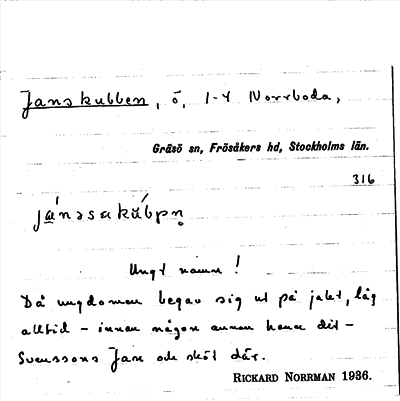 Janskubben, ö, 1-4 Norrboda,
Gräsö sn, Frösåkers hd, Stockholms län.
316
Ungt namn!
Då ungdomen begav sig ut på jakt, låg
alltid – innan någon annan hann dit –
Svenssons Jan och sköt där.
RICKARD NORRMAN 1936.